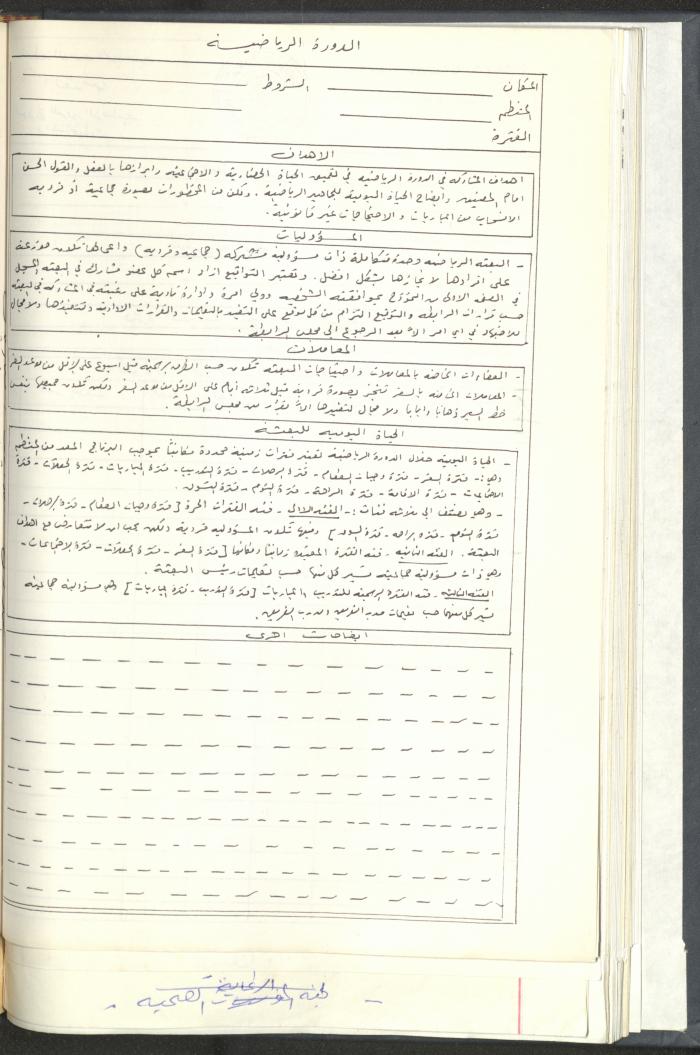 الدورة الرياضية
المكان ـــــــ الشروط ـــــــ
المنظم ـــــــ
الفترة
الاهداف
اهداف المشاركه في الدورة الرياضيه في تعميق الحياة الحضارية والاجتماعية وابرازها بالعقل والقول الحسن
امام المضيف وايضاح الحياة اليومية للجماهير الرياضية . وتكن من المحظورات بصورة جماعية أو فرديه
الانسحاب من المباريات والاحتجاجات غير قانونية .
المسؤوليات
ـ البعثه الرياضيه وحدة متكاملة ذات مسؤولية مشتركه (جماعيه وفرديه) واعمالها تكون موزعة
على افرادها لانجازها بشكل افضل . وتعتبر التواقيع ازاء اسم كل عضو مشارك في البعثه المسجل
في الصفحه الاولى من النموذج بموافقته الشخصيه وولي امرة وادارة ناديه على رغبته في المشاركه في البعثه
حسب قرارات الرابطه والتوقيع التزام من كل موقع على التقيد بالتعليمات والقرارات الادارية وتنفيذها ولا مجال
للاجتهاد في اي امر الا بعد الرجوع الى مجلس الرابطة .
المعاملات
ـ العطاءات الخاصه بالمعاملات واحتياجات البعثه تكون حسب الطرق الرسمية قبل اسبوع على الاقل من موعد السفر
ـ المعاملات الخاصه بالسفر تنجز بصورة فردية قبل ثلاثه أيام على الاقل من موعد السفر وتكن تكون جميعها بنفس
خط السير ذهابا وايابا ولا مجال لتغيرها الا بقرار من مجلس الرابطة .
الحياة اليوميه للبعثة
ـ الحياة اليومية خلال الدورة الرياضية تعتبر فترات زمنية محددة مكانياً بموجب البرنامج المعد من المنظم
وهي :- فترة السفر - فترة وجبات الطعام - فترة الرحلات - فترة التدريب - فترة المباريات - فترة الحفلات - فترة
الاجتماعات - فترة الاقامة - فترة الراحة - فترة النوم - فترة التسوق .
ـ وهو تصنف الى ثلاثه فئات :- الفئه الاولى - فئه الفترات الحرة [ فترة وجبات الطعام - فترة الرحلات -
فترة النوم - فترة الراحه - فترة التسوق ] وفيها تكون المسؤولية فردية وتكن يجب ان لا تتعارض مع اهداف
البعثة . الفئه الثانية - فئه الفترة المقيدة زمانياً ومكانياً [ فترة السفر - فترة الحفلات - فترة الاجتماعات -
وهي ذات مسؤولية جماعيه تسير كل منها حسب تعليمات رئيس البعثة .
الفئه الثالثه - فئه الفترة الرسميه للتدريب والمباريات [ فترة التدريب - فترة المباريات ] وهي مسؤولية جماعيه
تسير كل منها حسب تعليمات مدير الفريق ومدرب الفريق .
ايضاحات اخرى
لجنة الرعاية الصحية